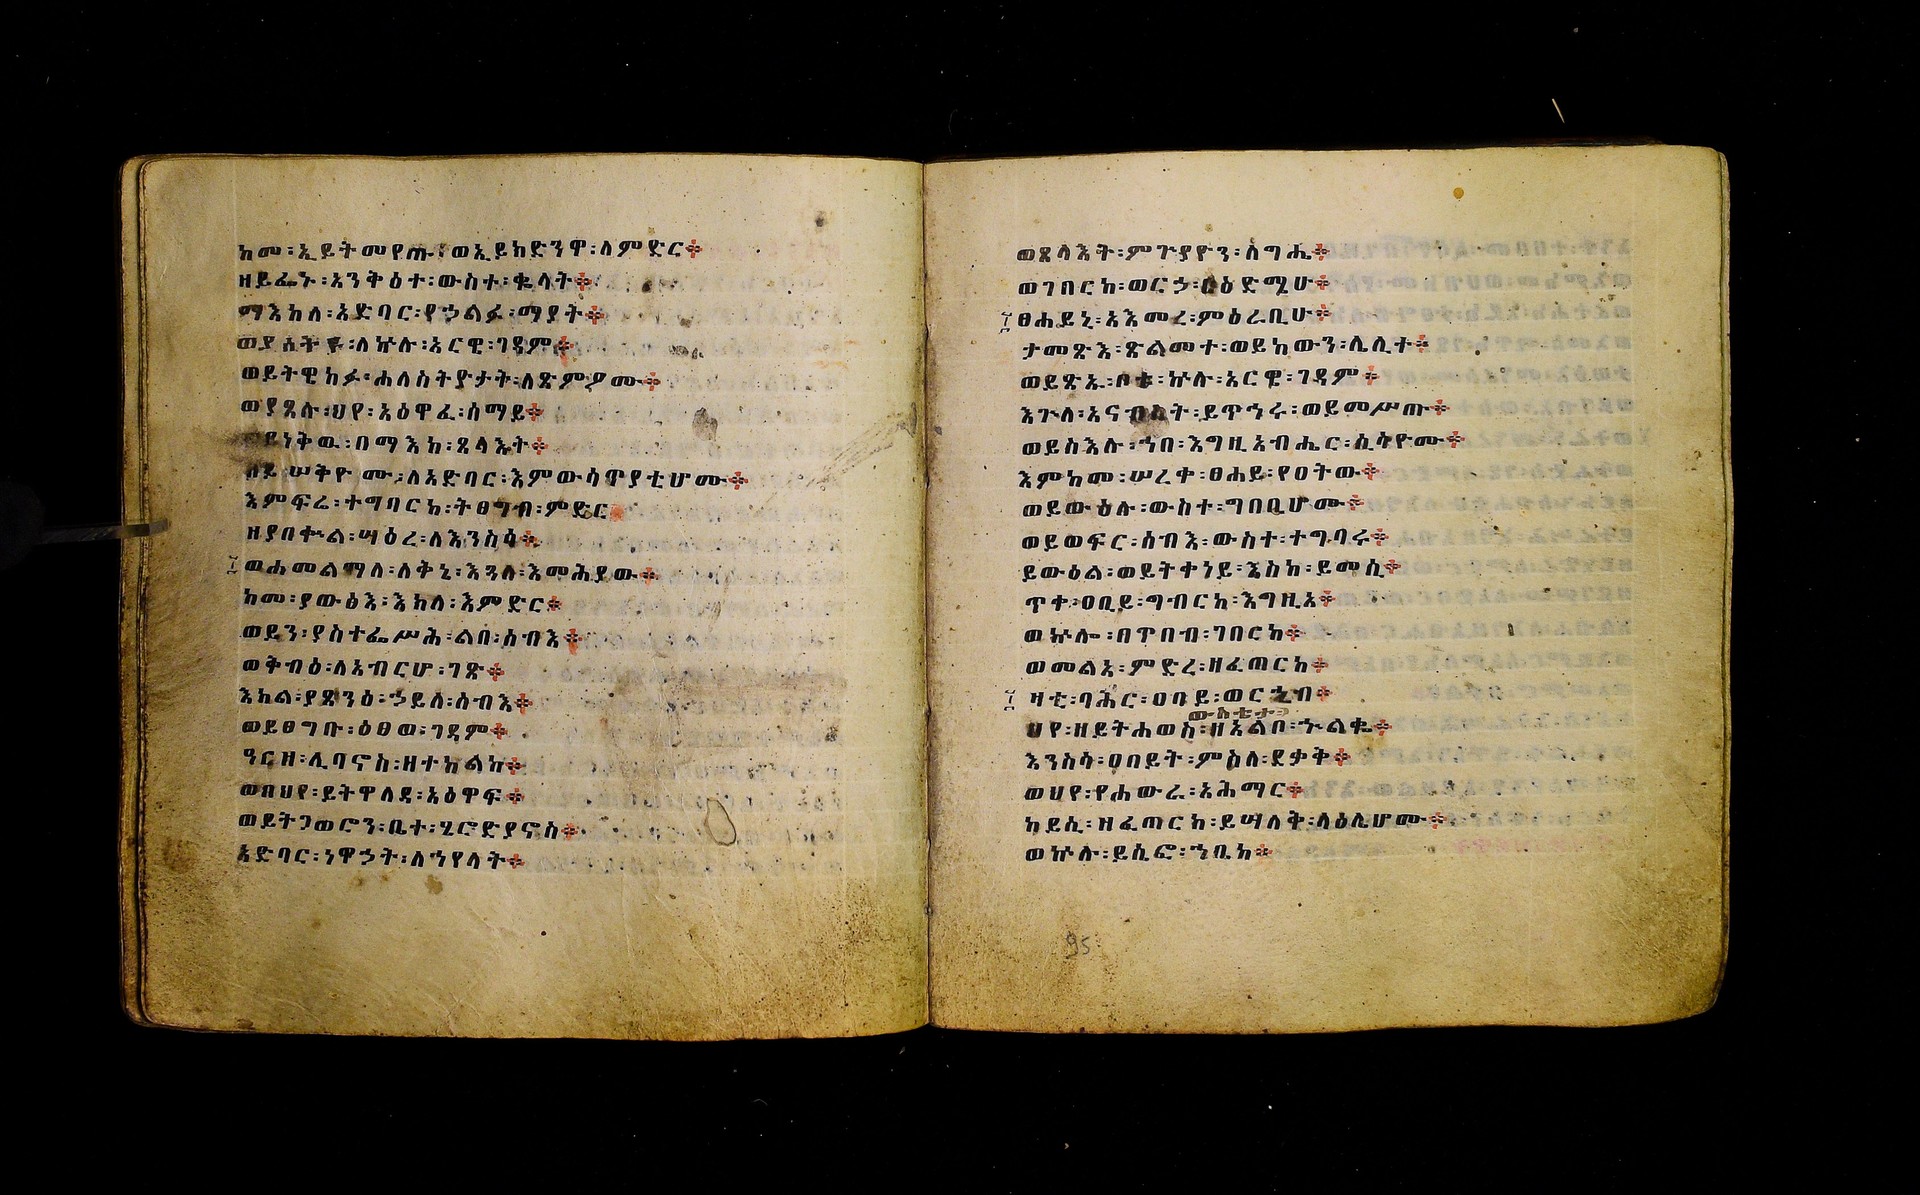 ከመ፡ኢይትመየጡ፡ወኢይክድንዋ፡ለምድር፨
ዘይፌኑ፡አንቅዕተ፡ውስተ፡ቈላት፨
ማእከለ፡አድባር፡የኃልፉ፡ማያት፨
ወያሰትዩ፡ለኵሉ፡አርዊ፡ገዳም፨
ወይትዌከፉ፡ሐለስትያታት፡ለጽምዖሙ፨
ወያጼሉ፡ህየ፡አዕዋፈ፡ሰማይ፨
ወይነቅዉ፡በማእከ፡ጸላእት፨
ለይሠቅዮሙ፡ለአድባር፡እምውሳጥያቲሆሙ፨
እምፍሬ፡ተግባርከ፡ትፀግብ፡ምድር፨
ዘያበቍል፡ሣዕረ፡ለእንስሳ፨
ወሐመልማለ፡ለቅኔ፡እጓለ፡እመሕያው፨
ከመ፡ያውፅእ፡እክለ፡እምድር፨
ወይን፡ያስተፌሥሕ፡ልበ፡ሰብእ፨
ወቅብዕ፡ለአብርሆ፡ገጽ፨
እክል፡ያጸንዕ፡ኃይለ፡ሰብእ፨
ወይፀግቡ፡ዕፀወ፡ገዳም፨
ዓርዘ፡ሊባኖስ፡ዘተከልከ፨
ወበህየ፡ይትዋለዳ፡አዕዋፍ፨
ወይትጋወሮን፡ቤተ፡ሄሮድያኖስ፨
አድባር፡ነዋኃት፡ለኀየላት፨
ወጸላእት፡ምጕያዮን፡ለግሔ፨
ወገበርከ፡ወርኃ፡በዕድሜሁ፨
ፀሐይኒ፡አእመረ፡ምዕራቢሁ፨
ታመጽእ፡ጽልመተ፡ወይከውን፡ሌሊተ፨
ወይጽኡ፡ቦቱ፡ኵሉ፡አርዌ፡ገዳም፨
እጕለ፡አናብስት፡ይጥኅሩ፡ወይመሥጡ፨
ወይስእሉ፡ኀበ፡እግዚአብሔር፡ሲሳዮሙ፨
እምከመ፡ሠረቀ፡ፀሐይ፡የዐትው፨
ወይውዕሉ፡ውስተ፡ግበቢሆሙ፨
ወይወፍር፡ሰብእ፡ውስተ፡ተግባሩ፨
ይውዕል፡ወይትቀነይ፡እስከ፡ይመሲ፨
ጥቀ፡ዐቢይ፡ግብርከ፡እግዚአ፨
ወኵሎ፡በጥበብ፡ገበርከ፨
ወመልአ፡ምድረ፡ዘፈጠርከ፨
ዛቲ፡ባሕር፡ዐባይ፡ወርኂብ፨
ውስቴታ፡
ህየ፡ዘይትሐወስ፡ዘአልቦ፡ኍልቈ፨
እንስሳ፡ዐበይት፡ምስለ፡ደቃቅ፨
ወህየ፡የሐውራ፡አሕማር፨
ከይሲ፡ዘፈጠርከ፡ይሣለቅ፡ላዕሌሆሙ፨
ወኵሉ፡ይሴፎ፡ኀቤከ፨
95